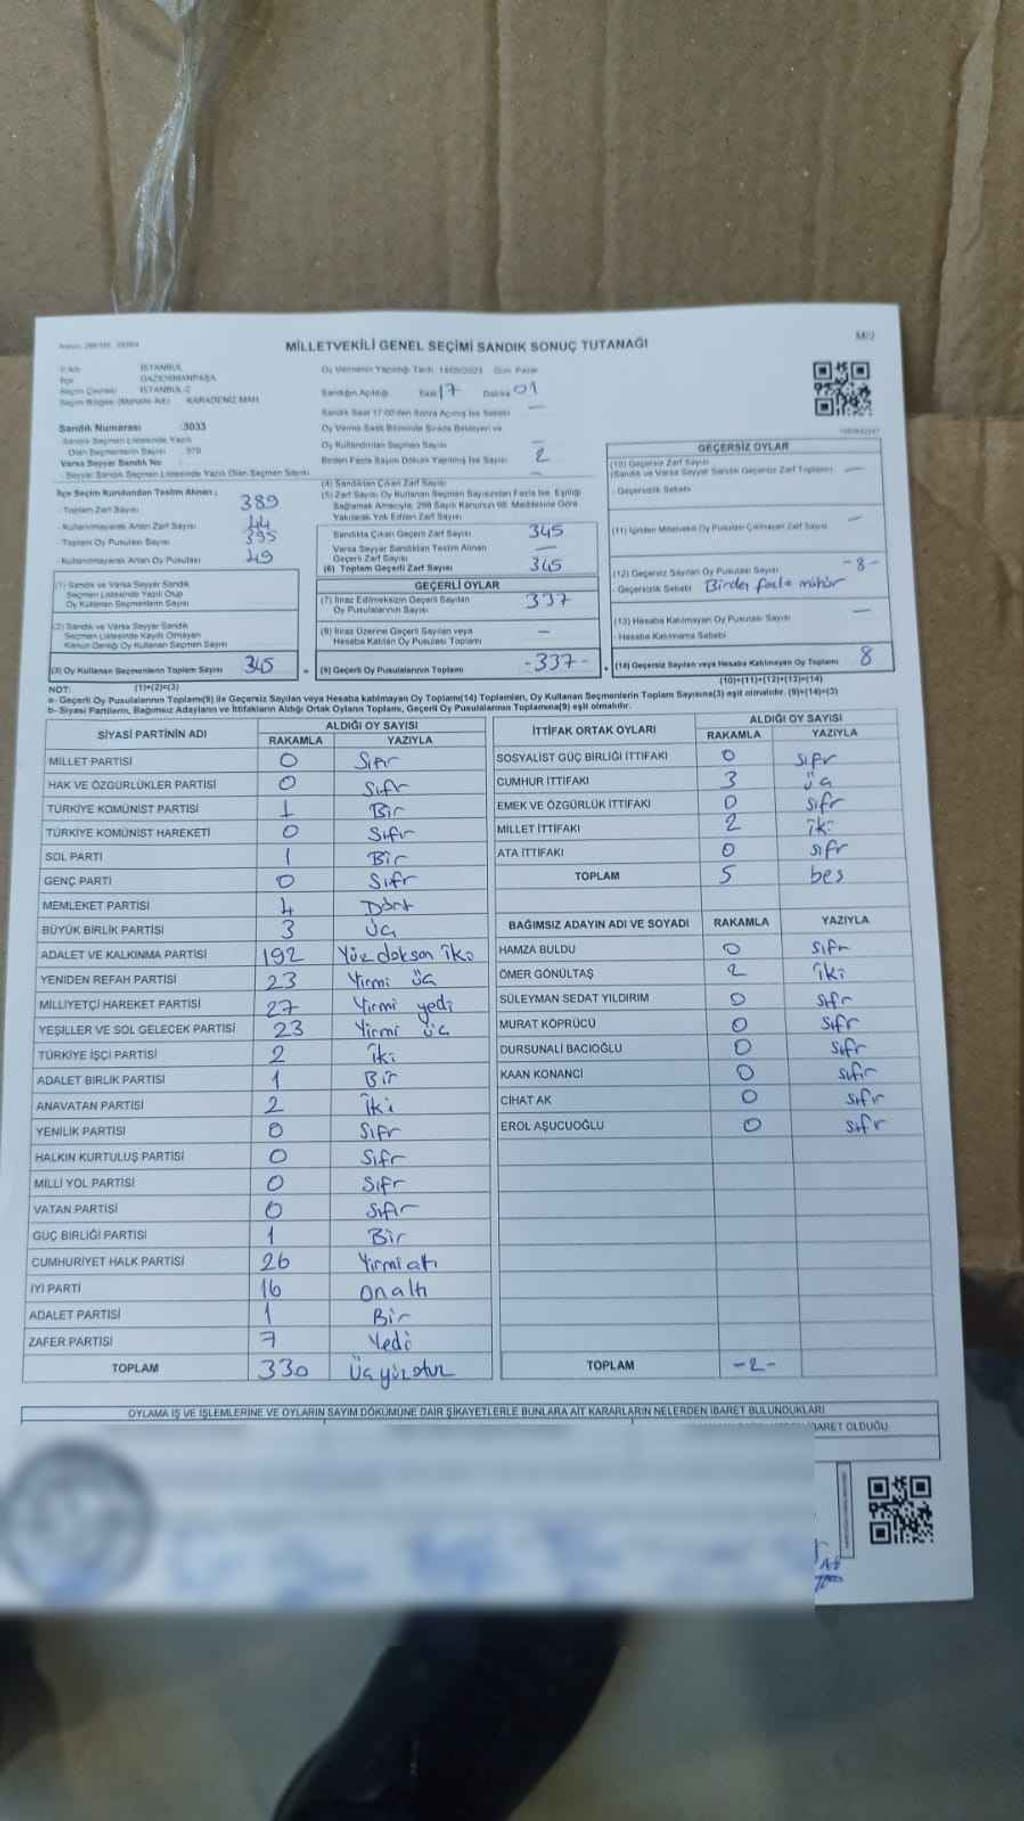 MİLLETVEKİLİ GENEL SEÇİMİ SANDIK SONUÇ TUTANAĞI
İSTANBUL
GAZİOSMANPAŞA
İSTANBUL-2
KARADENİZ MAH.
Sandık Numarası 3033
İlçe Seçim Kurulundan Teslim Alınan :
Toplam Zarf Sayısı 389
Kullanılmayarak Artan Zarf Sayısı 44
Toplam Oy Pusulası Sayısı 395
Kullanılmayarak Artan Oy Pusulası 49
(1) Sandık ve Varsa Seyyar Sandık
Seçmen Listesinde Yazılı Olup
Oy Kullanan Seçmenlerin Sayısı
(2) Sandık ve Varsa Seyyar Sandık
Seçmen Listesinde Kayıtlı Olmayan
Kanun Gereği Oy Kullanan Seçmen Sayısı
(3) Oy Kullanan Seçmenlerin Toplam Sayısı 345
(1)+(2)=(3)
Oy Vermenin Yapıldığı Tarih: 14/05/2023 Gün: Pazar
Sandığın Açıldığı Saat 17 Dakika 01
Sandık Saat 17:00'den Sonra Açılmış İse Sebebi —
Oy Verme Saati Bitiminde Sırada Bekleyen ve
Oy Kullandırılan Seçmen Sayısı —
Birden Fazla Sayım Döküm Yapılmış İse Sayısı 2
(4) Sandıktan Çıkan Zarf Sayısı —
(5) Zarf Sayısı Oy Kullanan Seçmen Sayısından Fazla İse, Eşitliği
Sağlamak Amacıyla, 298 Sayılı Kanunun 98. Maddesine Göre
Yakılarak Yok Edilen Zarf Sayısı
Sandıkta Çıkan Geçerli Zarf Sayısı 345
Varsa Seyyar Sandıktan Teslim Alınan
Geçerli Zarf Sayısı —
(6) Toplam Geçerli Zarf Sayısı 345
GEÇERLİ OYLAR
(7) İtiraz Edilmeksizin Geçerli Sayılan
Oy Pusulalarının Sayısı 337
(8) İtiraz Üzerine Geçerli Sayılan veya
Hesaba Katılan Oy Pusulası Toplamı —
(9) Geçerli Oy Pusulalarının Toplamı -337-
GEÇERSİZ OYLAR
(10) Geçersiz Zarf Sayısı
(Sandık ve Varsa Seyyar Sandık Geçersiz Zarf Toplamı) —
Geçersizlik Sebebi
(11) İçinden Milletvekili Oy Pusulası Çıkmayan Zarf Sayısı —
(12) Geçersiz Sayılan Oy Pusulası Sayısı -8-
Geçersizlik Sebebi Birden fazla mühür
(13) Hesaba Katılmayan Oy Pusulası Sayısı —
Hesaba Katılmama Sebebi
(14) Geçersiz Sayılan veya Hesaba Katılmayan Oy Toplamı 8
(10)+(11)+(12)+(13)=(14)
NOT:
a- Geçerli Oy Pusulalarının Toplamı(9) ile Geçersiz Sayılan veya Hesaba katılmayan Oy Toplamı(14) Toplamları, Oy Kullanan Seçmenlerin Toplam Sayısına(3) eşit olmalıdır. (9)+(14)=(3)
b- Siyasi Partilerin, Bağımsız Adayların ve İttifakların Aldığı Ortak Oyların Toplamı, Geçerli Oy Pusulalarının Toplamına(9) eşit olmalıdır.
SİYASİ PARTİNİN ADI ALDIĞI OY SAYISI
RAKAMLA YAZIYLA
MİLLET PARTİSİ 0 Sıfır
HAK VE ÖZGÜRLÜKLER PARTİSİ 0 Sıfır
TÜRKİYE KOMÜNİST PARTİSİ 1 Bir
TÜRKİYE KOMÜNİST HAREKETİ 0 Sıfır
SOL PARTİ 1 Bir
GENÇ PARTİ 0 Sıfır
MEMLEKET PARTİSİ 4 Dört
BÜYÜK BİRLİK PARTİSİ 3 Üç
ADALET VE KALKINMA PARTİSİ 192 Yüz doksan iki
YENİDEN REFAH PARTİSİ 23 Yirmi üç
MİLLİYETÇİ HAREKET PARTİSİ 27 Yirmi yedi
YEŞİLLER VE SOL GELECEK PARTİSİ 23 Yirmi üç
TÜRKİYE İŞÇİ PARTİSİ 2 İki
ADALET BİRLİK PARTİSİ 1 Bir
ANAVATAN PARTİSİ 2 İki
YENİLİK PARTİSİ 0 Sıfır
HALKIN KURTULUŞ PARTİSİ 0 Sıfır
MİLLİ YOL PARTİSİ 0 Sıfır
VATAN PARTİSİ 0 Sıfır
GÜÇ BİRLİĞİ PARTİSİ 1 Bir
CUMHURİYET HALK PARTİSİ 26 Yirmi altı
İYİ PARTİ 16 on altı
ADALET PARTİSİ 1 Bir
ZAFER PARTİSİ 7 Yedi
TOPLAM 330 Üç yüz otuz
İTTİFAK ORTAK OYLARI ALDIĞI OY SAYISI
RAKAMLA YAZIYLA
SOSYALİST GÜÇ BİRLİĞİ İTTİFAKI 0 sıfır
CUMHUR İTTİFAKI 3 üç
EMEK VE ÖZGÜRLÜK İTTİFAKI 0 sıfır
MİLLET İTTİFAKI 2 iki
ATA İTTİFAKI 0 sıfır
TOPLAM 5 beş
BAĞIMSIZ ADAYIN ADI VE SOYADI RAKAMLA YAZIYLA
HAMZA BULDU 0 sıfır
ÖMER GÖNÜLTAŞ 2 iki
SÜLEYMAN SEDAT YILDIRIM 0 sıfır
MURAT KÖPRÜCÜ 0 sıfır
DURSUNALİ BACIOĞLU 0 sıfır
KAAN KONANCİ 0 sıfır
CİHAT AK 0 sıfır
EROL AŞUCUOĞLU 0 sıfır
TOPLAM -2-
OYLAMA İŞ VE İŞLEMLERİNE VE OYLARIN SAYIM DÖKÜMÜNE DAİR ŞİKAYETLERLE BUNLARA AİT KARARLARIN NELERDEN İBARET BULUNDUKLARI
OLDUĞU